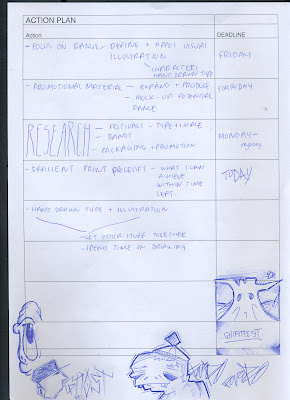 ACTION PLAN
Action
DEADLINE
- FOCUS ON RANGE DEFINE + APPLY VISUAL
ILLUSTRATION
CHARACTER
HAND DRAWN TYPE
FRIDAY
- PROMOTIONAL MATERIAL - EXPAND + PRODUCE
- MOCK-UP POTENTIAL
RANGE
RESEARCH
- FESTIVALS - TYPE + IMAGE
- BANDS
- PACKAGING + PROMOTION
MONDAY -
ongoing
- DIFFERENT PRINT PROCESSES - WHAT I CAN
ACHIEVE
WITHIN TIME
LEFT
TODAY
- HAND DRAWN TYPE + ILLUSTRATION
- GET OTHER STUFF TOGETHER
- SPEND TIME ON DRAWING
GHOSTFEST